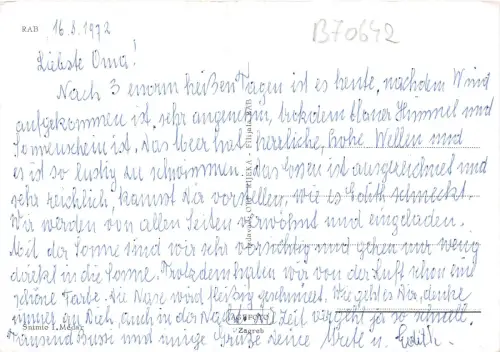 RAB 16.8.1972
B70642
Liebste Oma!
Nach 3 enorm heißen Tagen ist es heute, nachdem Wind
aufgekommen ist, sehr angenehm, trotzdem blauer Himmel und
Sonnenschein ist. Das Meer hat herrliche, hohe Wellen und
es ist so lustig zu schwimmen. Das Essen ist ausgezeichnet und
sehr reichlich, kannst dir vorstellen, wie es Edith schmeckt.
Wir werden von allen Seiten verwöhnt und eingeladen.
Mit der Sonne sind wir sehr vorsichtig und gehen nur wenig
direkt in die Sonne. Trotzdem haben wir von der Luft schon eine
schöne Farbe. Die Nase wird fleißig geschmiert. Wie geht es Dir, denke
immer an Dich, auch in der Zeit vergeht ja so schnell.
Tausend Bussi und innige Grüße Deine Grete u. Edith.
Snimio I. Medar
AGEFOTO
Zagreb